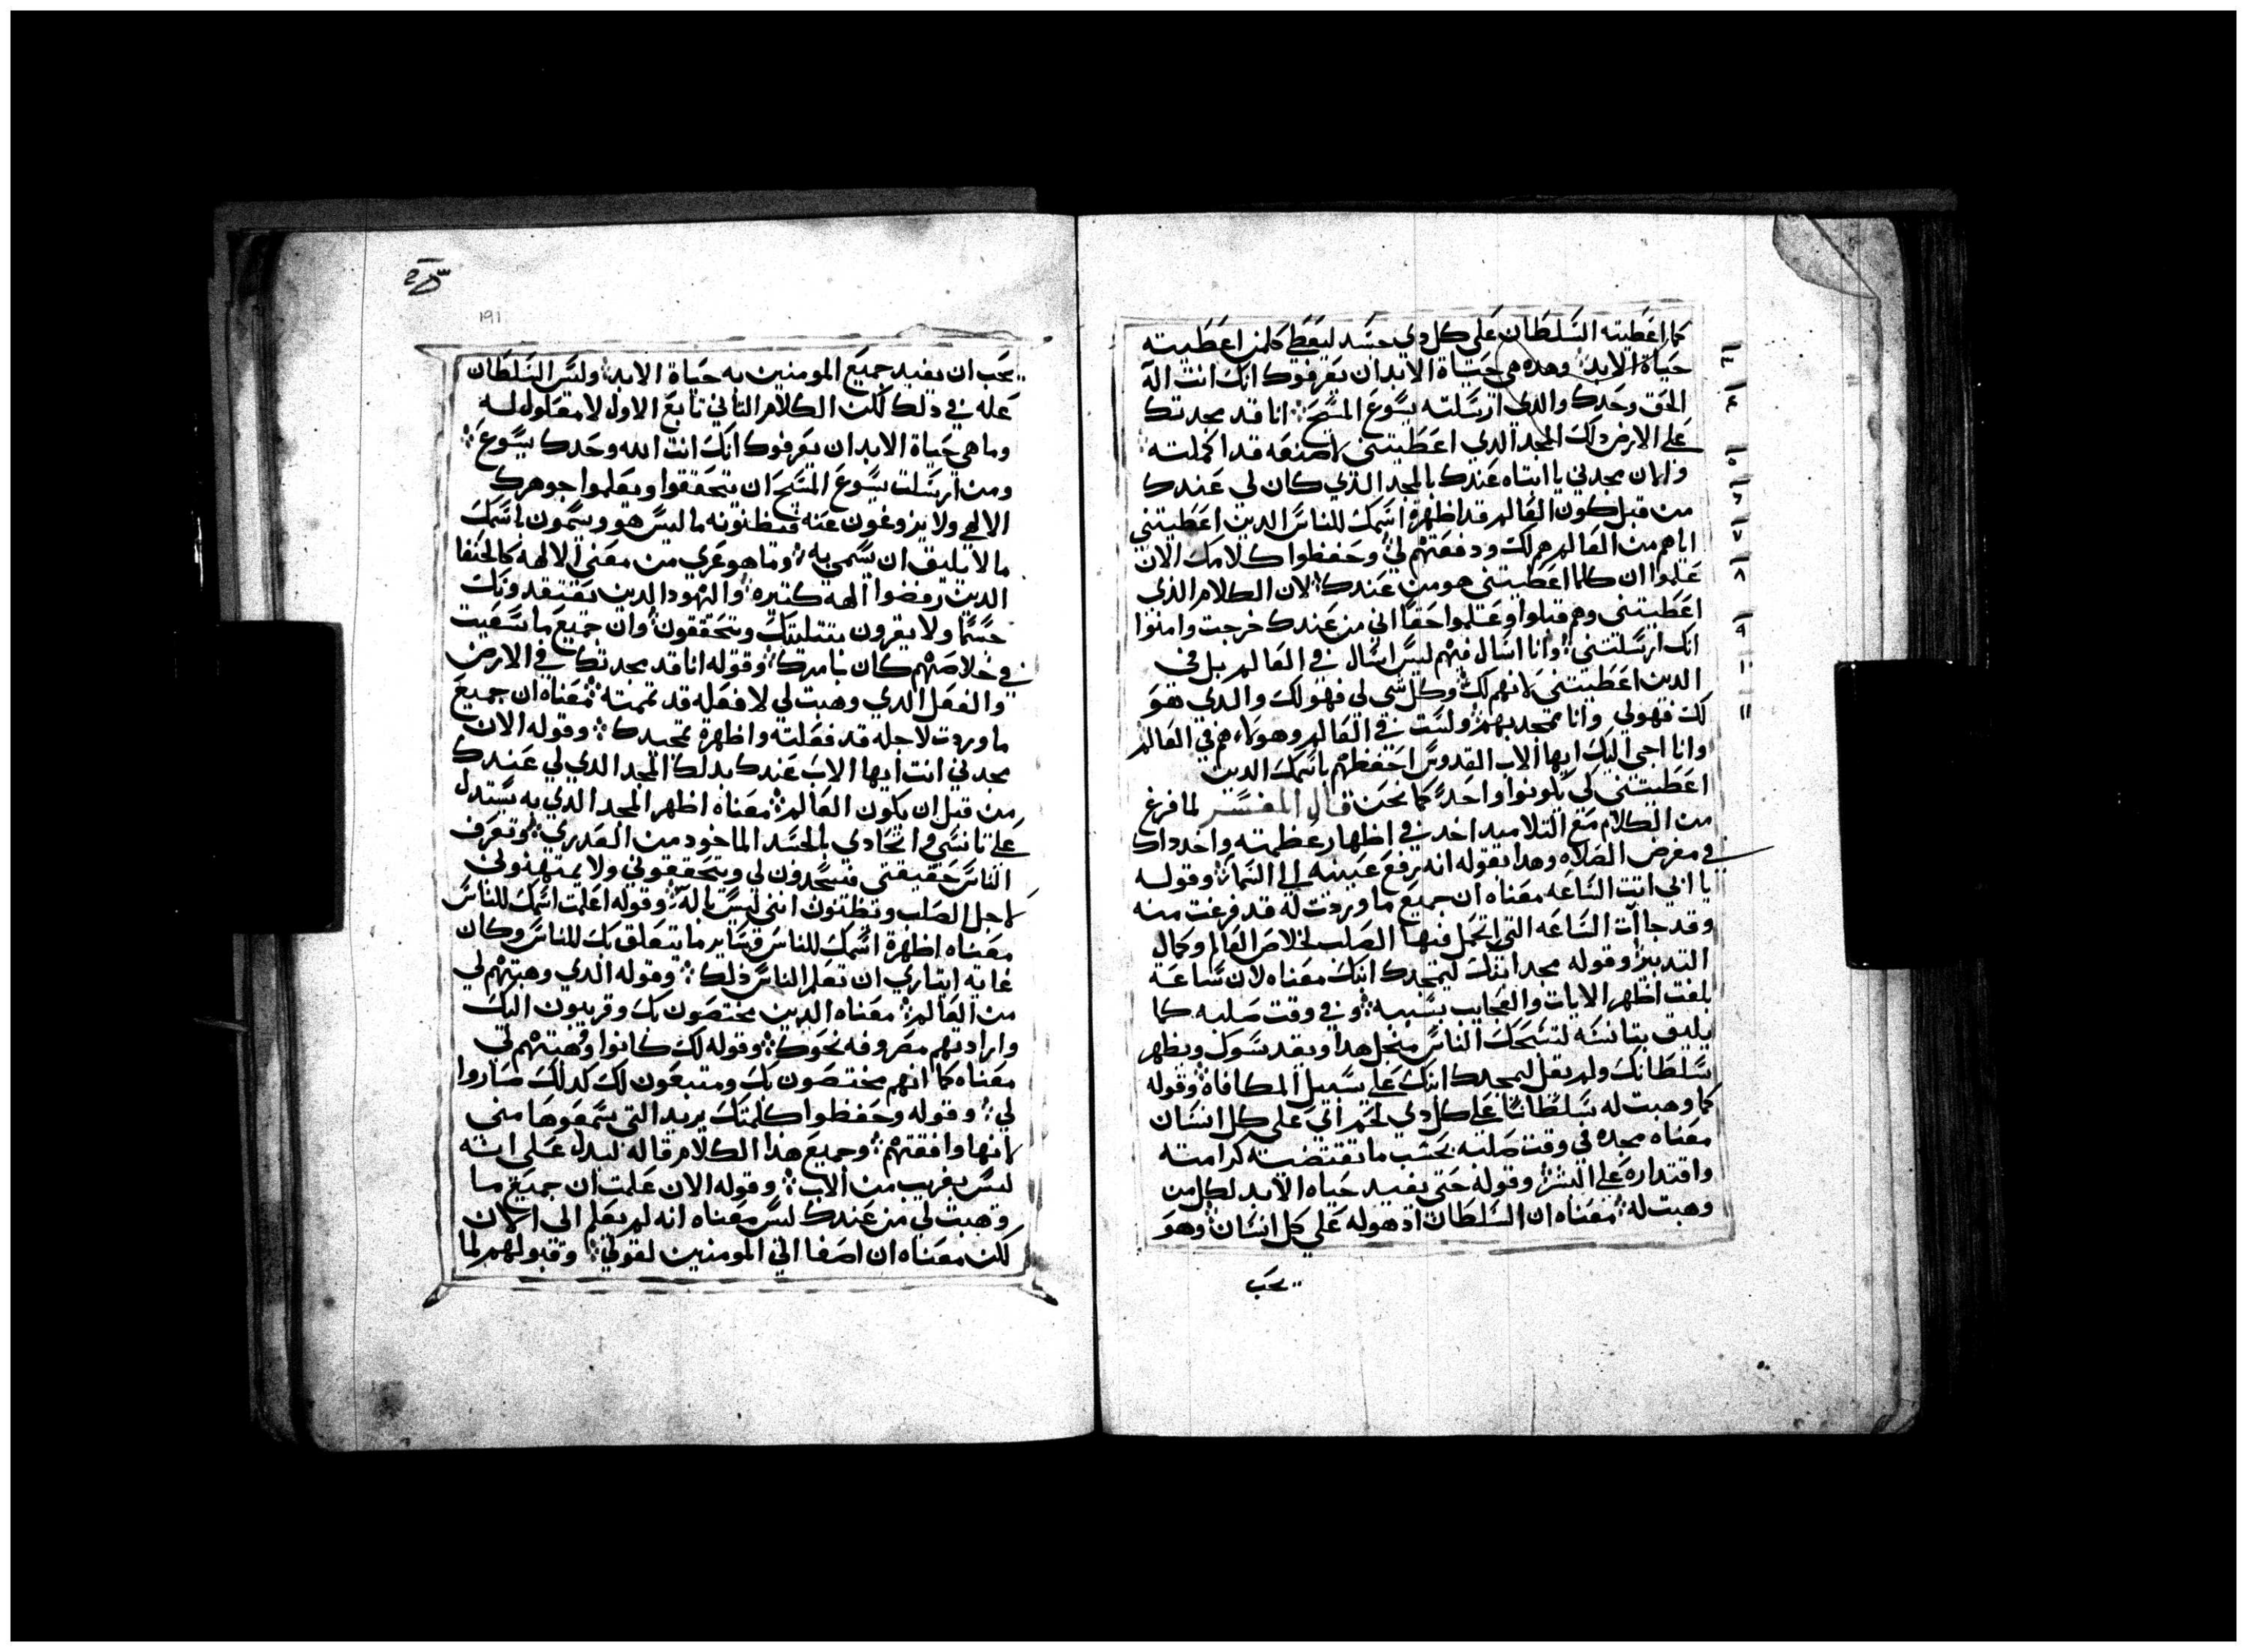 كما اعطيته السلطان على كل دي جسد ليعطي كلمن اعطيته
حياة الابد وهده هي حياة الابد ان يعرفوك انك انت اله
الحق وحدك والدي ارسلته يسوع المسيح انا قد مجدتك
على الارض دلك المجد الدي اعطيتني لاصنعه قد اكملته
والان مجدني يا ابتاه عندك بالمجد الدي كان لي عندك
من قبل كون العالم قد اظهرة اسمك للناس الدين اعطيتني
اياهم من العالم هم لك ودفعتهم لي وحفظوا كلامك الان
علموا ان كلما اعطيتني هو من عندك لان الكلام الذي
اعطيتني وهم قبلوا وعلموا حقا اني من عندك خرجت وامنوا
انك ارسلتني وانا اسال فيهم ليس اسال في العالم بل في
الدين اعطيتني لانهم لك وكل شي لي فهو لك والدي هو
لك فهو لي وانا ممجد بهم ولست في العالم وهولاء هم في العالم
وانا اجى اليك ايها الاب القدوس احفظهم باسمك الدين
اعطيتني كي يكونوا واحدا كما نحن قال المفسر لما فرغ
من الكلام مع التلاميد اخد في اظهار عظمته واخد داك
في معرض الصلاه وهدا بقوله انه رفع عينيه الى السماء وقوله
يا ابي اتت الساعه معناه ان جميع ما وردت له قد فرغت منه
وقد جاات الساعه التي اتحمل فيها الصلب لخلاص العالم وكمال
التدبير وقوله مجد ابنك ليمجدك ابنك معناه لان ساعة
بلغت اظهر الايات والعجايب بسببه وفي وقت صلبه كما
يليق بتانسه
سلطانك ولم يقل ليمجدك ابنك على سبيل المكافاة وقوله
كما وهبت له سلطانا على كل دي لحم اي على كل انسان
معناه مجده في وقت صلبه بحسب ما تقتضيه كرامته
واقتداره على البشر وقوله حتى يفيد حياه الابد لكل من
وهبت له معناه ان السلطان اد هو له على كل انسان وهو
يجب
191
يجب ان يفيد جميع المومنين به حياة الابد وليس السلطان
عله في دلك لكن الكلام التاني تابع الاول لا معلول له
وما هي حياة الابد ان يعرفوك انك انت الله وحدك يسوع
ومن ارسلت يسوع المسيح ان يتحققوا ويعلموا جوهرك
الالهي ولا يزوغون عنه فيظنونه ما ليس هو ويسمون باسمك
ما لا يليق ان يسمي به وما هو عري من معنى الالهه كالحنفا
الدين رفضوا الهه كتيره واليهود الدين تعتقدونك
جسما ولا يقرون بتتليتك ويتحققون وان جميع ما سعيت
في خلاصهم كان بامرك وقوله انا قد مجدتك في الارض
والفعل الدي وهبت لي لافعله قد تممته معناه ان جميع
ما وردت لاجله قد فعلته واظهرة تمجيدك وقوله الان
مجدني انت ايها الاب عندك بدلك المجد الدي لي عندك
من قبل ان يكون العالم معناه اظهر المجد الدي به يستدل
على تانسي واتحادي بالجسد الماخود من العدري وتعرف
الناس حقيقتي فيسجدون لي ويتحققوني ولا يمتهنوني
لاجل الصلب ويظنون انني ليس باله وقوله اعلمت اسمك للناس
معناه اظهرة اسمك للناس وساير ما يتعلق بك للناس وكان
غاية ايتاري ان تعلم الناس ذلك وقوله الدي وهبتهم لي
من العالم معناه الدين مختصون بك وقريبون اليك
وارادتهم مصروفه نحوك وقوله لك كانوا وهبتهم لي
معناه كما انهم مختصون بك ومتبعون لك كدلك صاروا
لي وقوله وحفظوا كلمتك يريد التي سمعوها مني
لانها وافقتهم وجميع هذا الكلام قاله ليدل على انه
ليس بغريب من الاب وقوله الان علمت ان جميع ما
وهبت لي من عندك ليس معناه انه لم يعلم الى الان
لكن معناه ان اصفا الى المومنين لقولي وقبولهم لما